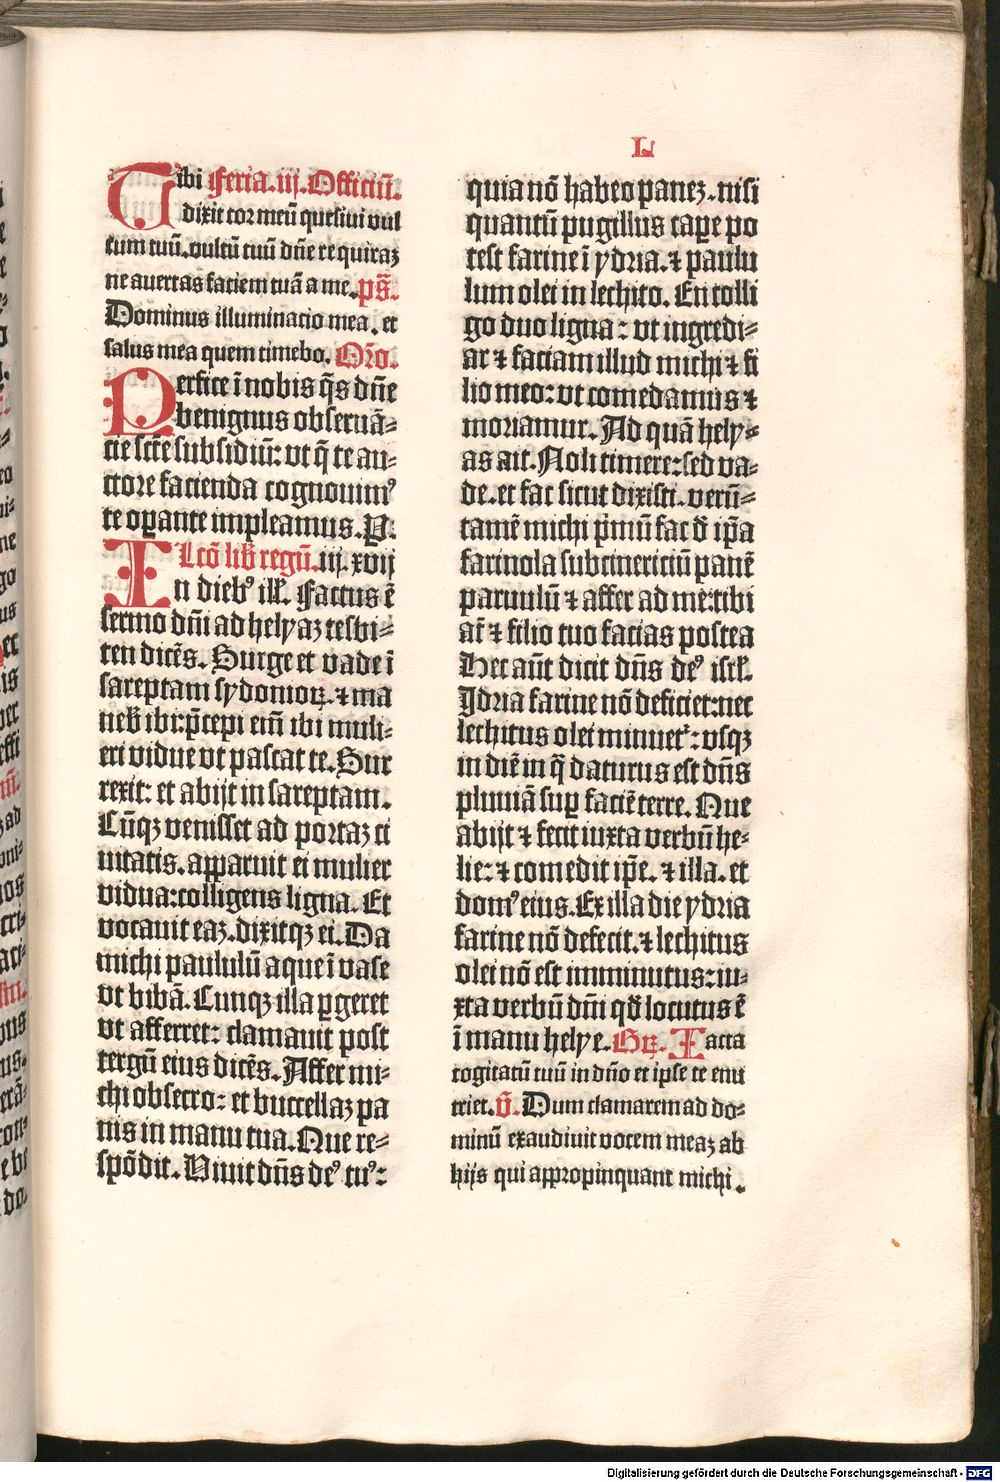 L
Tibi Feria.iij.Officiũ.
dixit cor meũ quesiui vul
tum tuũ.vultũ tuũ dñe requiraz
ne auertas faciem tuã a me.p̃s.
Dominus illuminacio mea.et
salus mea quem timebo. Or̃o.
Perfice ĩ nobis q̃s dñe
benignus obseruã⸗
cie sctẽ subsidiũ: vt q̃ te au⸗
ctore facienda cognouimꝰ
te oꝑante impleamus.P.
Lcõ lib̃ regũ.iij.xvij
In diebꝰ ill̃. Factus ẽ
sermo dñi ad helyaz tesbi⸗
ten dicẽs. Surge et vade ĩ
sareptam sydonioꝝ.⁊ ma
neb̃ ibi:p̃cepi eñi ibi muli⸗
eri vidue vt pascat te. Sur
rexit: et abijt in sareptam.
Cũqꝫ venisset ad portaz ci
uitatis.apparuit ei mulier
vidua:colligens ligna. Et
vocauit eaz.dixitqꝫ ei. Da
michi paululũ aque ĩ vase
vt bibã. Cunqꝫ illa ꝑgeret
vt afferret: clamauit post
tergũ eius dicẽs. Affer mi⸗
chi obsecro: et buccellaz pa
nis in manu tua. Que re⸗
spõdit. Viuit dñs deꝰ tuꝰ:
quia nõ habeo panez.nisi
quantũ pugillus caꝑe po
test farine ĩ ydria.⁊ paulu
lum olei in lechito. En colli
go duo ligna: vt ingredi⸗
ar ⁊ faciam illud michi ⁊ fi
lio meo: vt comedamus ⁊
moriamur. Ad quã hely⸗
as ait. Noli timere:sed va⸗
de.et fac sicut dixisti.verũ⸗
tamẽ michi p̃mũ fac d̃ ip̃a
farinola subcinericiũ panẽ
paruulũ ⁊ affer ad me:tibi
aũt ⁊ filio tuo facias postea
Hec aũt dicit dñs deꝰ isrl̃.
Jdria farine nõ deficiet:nec
lechitus olei minuetʳ: vsqꝫ
in diẽ in q̃ daturus est dñs
pluuiã suꝑ faciẽ terre. Que
abijt ⁊ fecit iuxta verbũ he⸗
lie: ⁊ comedit ip̃e.⁊ illa.et
domꝰ eius. Ex illa die ydria
farine nõ defecit.⁊ lechitus
olei nõ est imminutus: iu⸗
xta verbũ dñi qd̃ locutus ẽ
ĩ manu helye. Gꝝ. Iacta
cogitatũ tuũ in dño et ipse te enu
triet. v̄. Dum clamarem ad do⸗
minũ exaudiuit vocem meaz ab
hijs qui appropinquant michi.
Digitalisierung gefördert durch die Deutsche Forschungsgemeinschaft - DFG